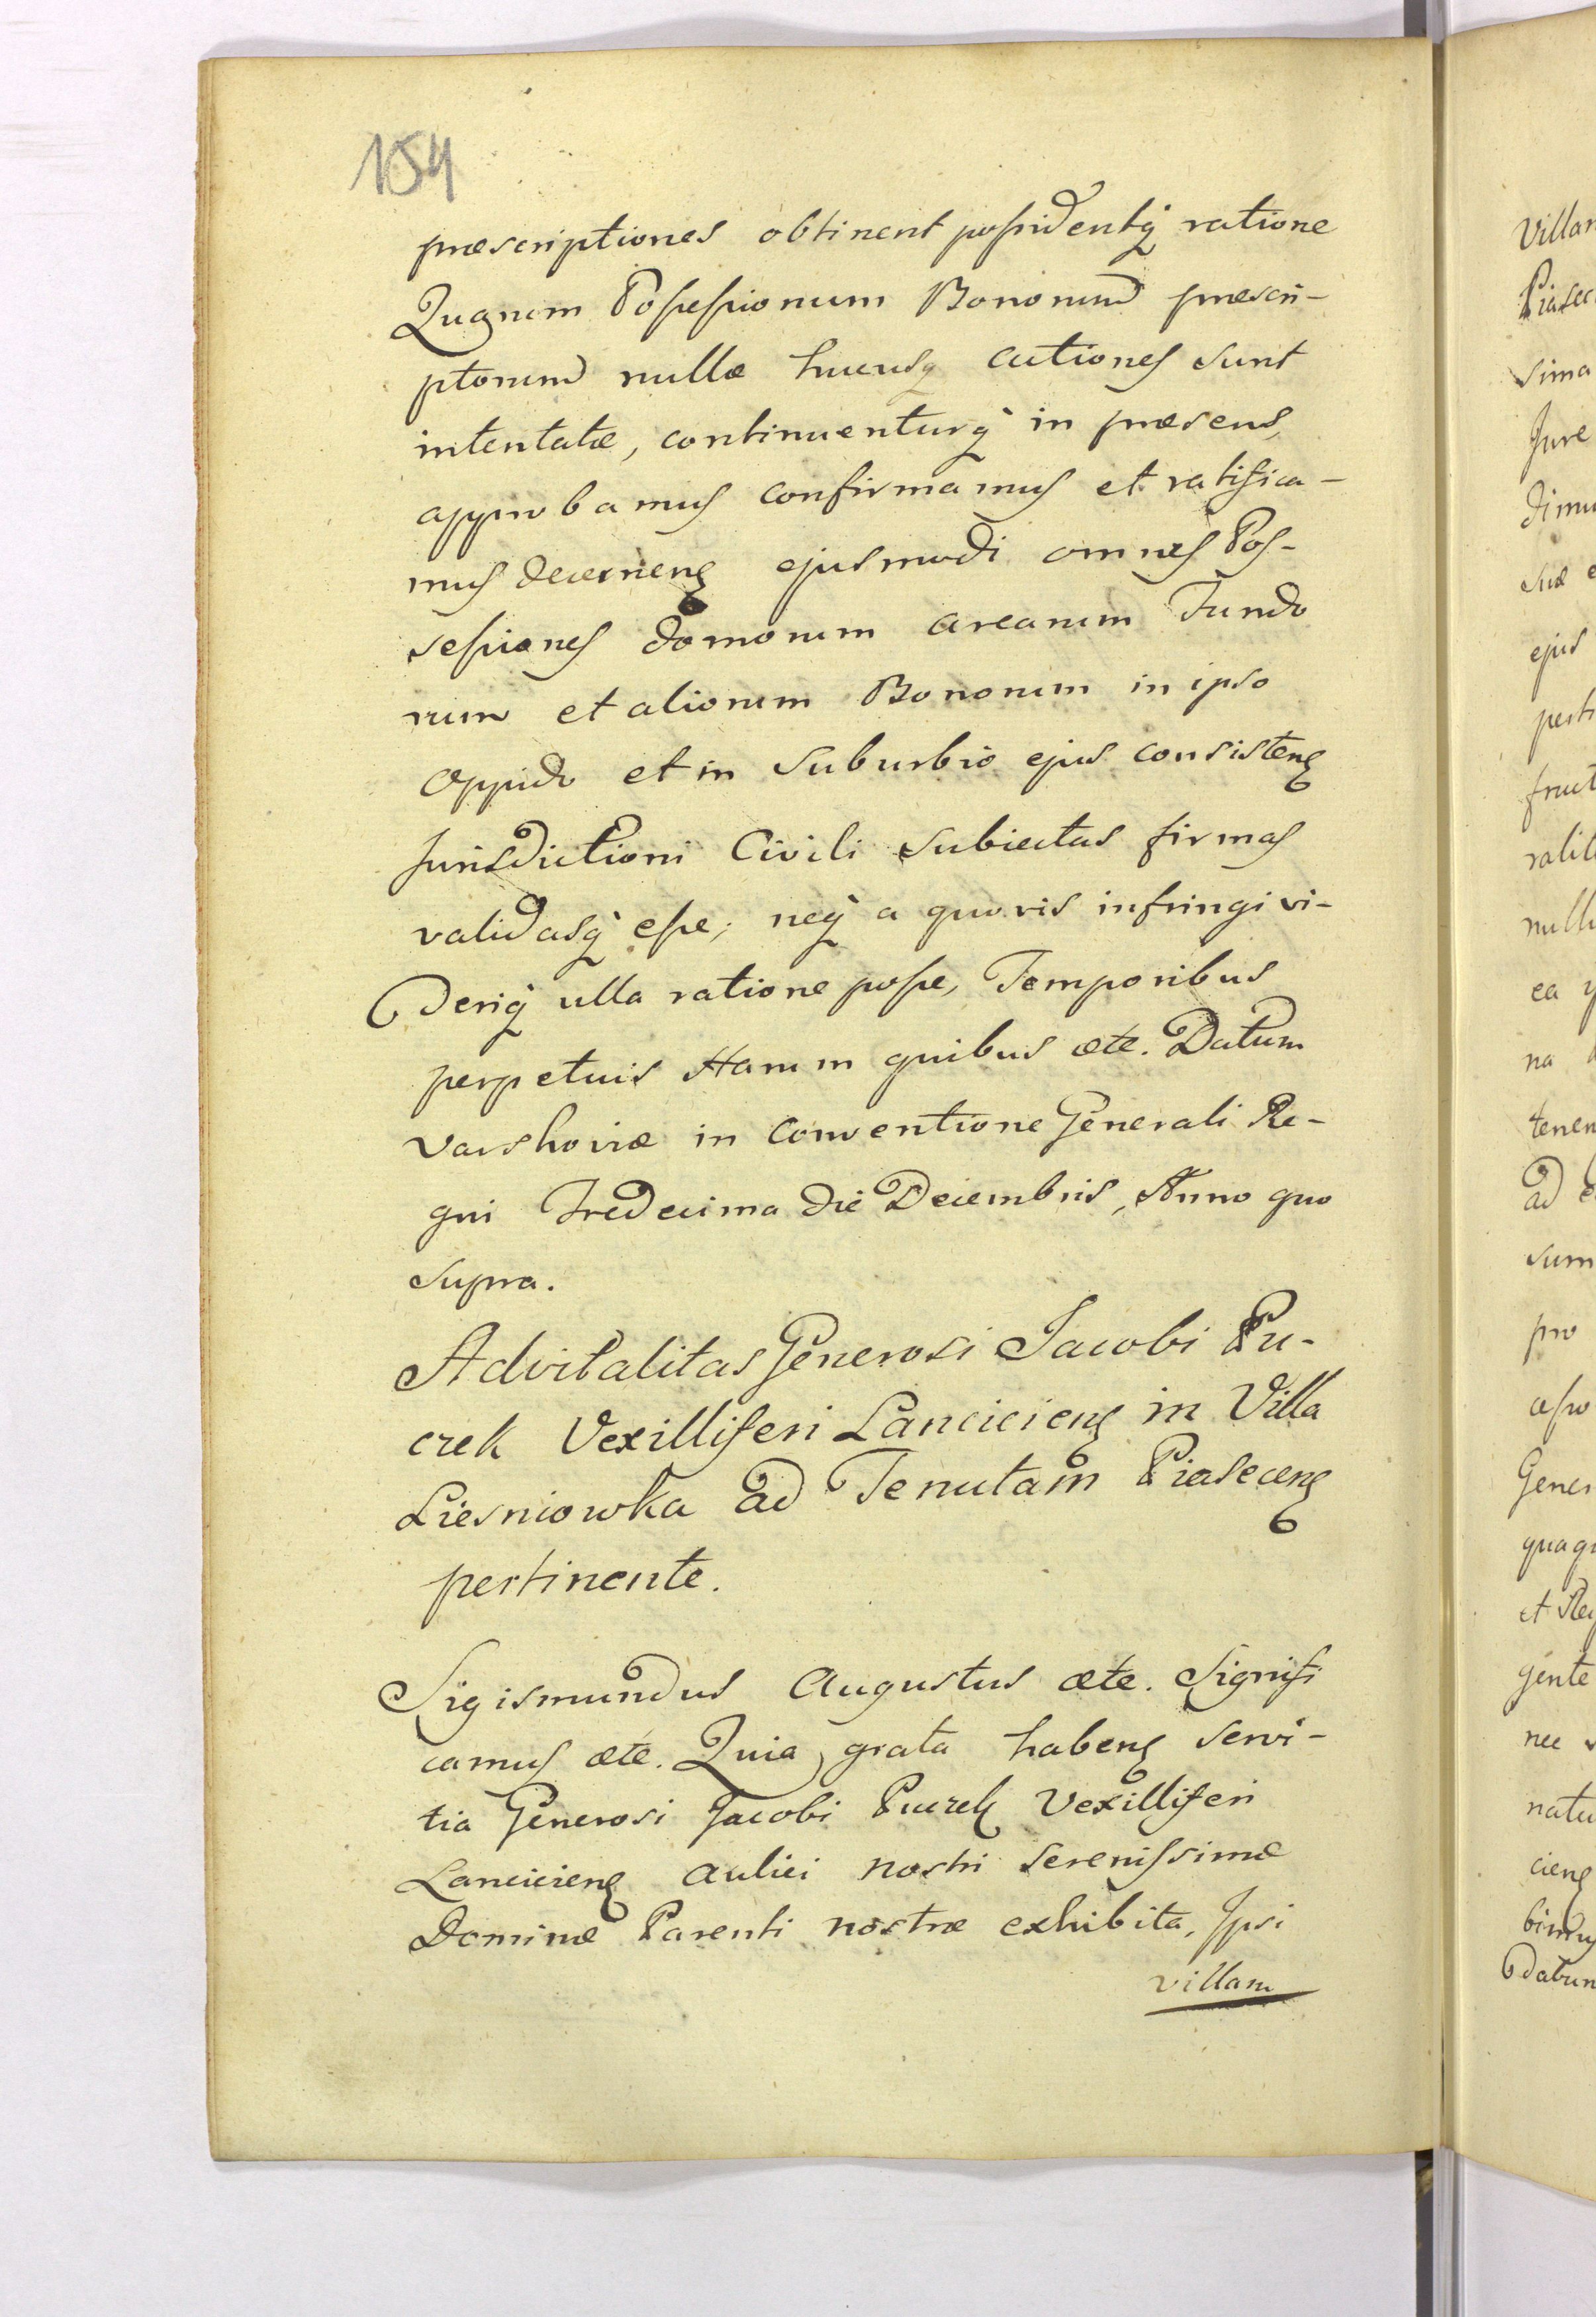 154
præscriptiones obtinent possidentq́ ratione
Quarum Possessionum Bonorum præscri-
ptorum nullæ hucusq actiones sunt
intentatæ, continuenturq́ in præsens,
approbamus confirmamus et ratifica-
mus decernenꝫ ejusmodi omnes Pos-
sessiones domorum arearum Fundo
rum et aliorum Bonorum in ipso
Oppido et in Suburbio ejus consistenꝫ
Jurisdictioni Civili Subiectas firmas
validasq́ esse; neq́ a quovis infringi vi-
deriq́ ulla ratione posse, Temporibus
perpetuis Harum quibus ætc. Datum
Varshoviæ in Conventione Generali Re-
gni Tredecima die Decembris, Anno quo
Supra.
Advitalitas Generosi Jacobi Pu-
czek Vexilliferi Lancicienꝫ in Villa
Liesniowka ad Tenutam Piasecenꝫ
pertinente.
Sigismundus Augustus ætc. Signifi
camus ætc. Quia grata habenꝫ servi-
tia Generosi Jacobi Puczek Vexilliferi
Lancicienꝫ aulici nostri Serenissimæ
Dominæ Parenti nostræ exhibita, Ipsi
villam
Villam
sima
Jure
ejus
pro